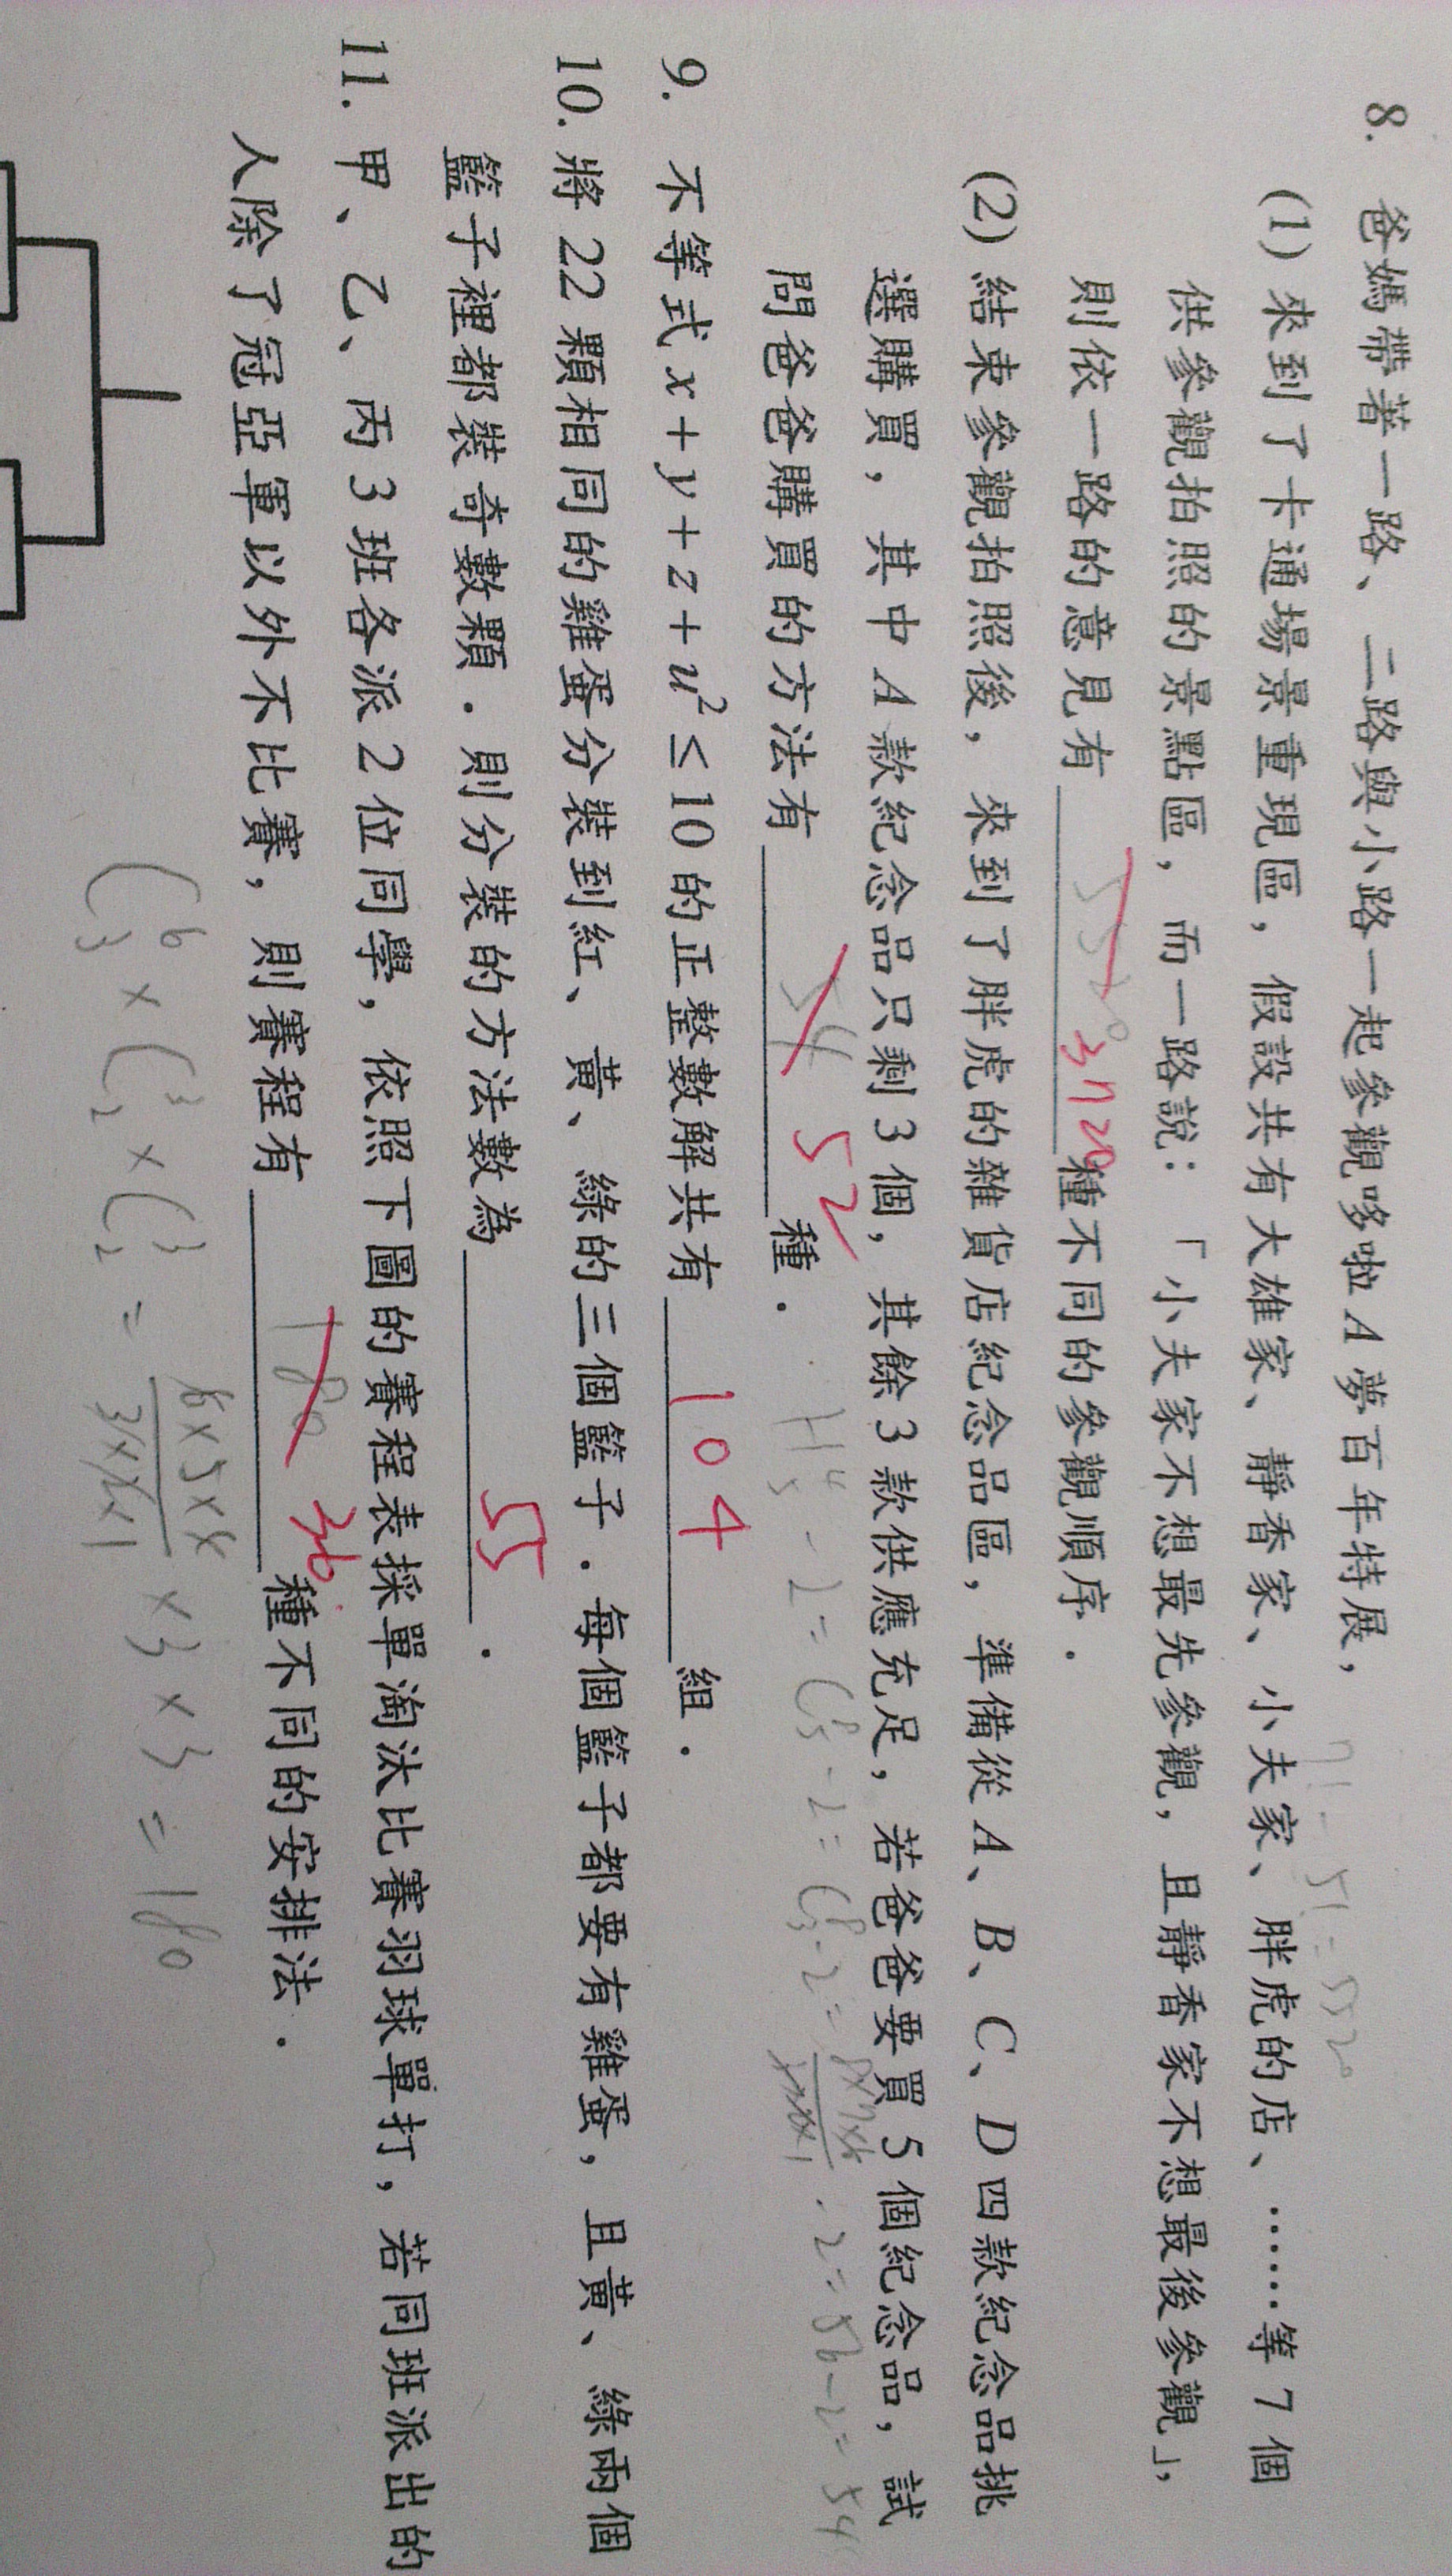 8. 爸媽帶著一路、二路與小路一起參觀哆啦A夢百年特展，
(1) 來到了卡通場景重現區，假設共有大雄家、靜香家、小夫家、胖虎的店、……等 7 個
供參觀拍照的景點區，而一路說：「小夫家不想最先參觀，且靜香家不想最後參觀」，
則依一路的意見有 5520 3720 種不同的參觀順序．
(2) 結束參觀拍照後，來到了胖虎的雜貨店紀念品區，準備從 A、B、C、D 四款紀念品挑
選購買，其中 A 款紀念品只剩 3 個，其餘 3 款供應充足，若爸爸要買 5 個紀念品，試
問爸爸購買的方法有 54 52 種．
9. 不等式 x + y + z + u² ≤ 10 的正整數解共有 104 組．
10. 將 22 顆相同的雞蛋分裝到紅、黃、綠的三個籃子．每個籃子都要有雞蛋，且黃、綠兩個
籃子裡都裝奇數顆．則分裝的方法數為 55 ．
11. 甲、乙、丙 3 班各派 2 位同學，依照下圖的賽程表採單淘汰比賽羽球單打，若同班派出的
人除了冠亞軍以外不比賽，則賽程有 180 36 種不同的安排法．
7! - 5! = 5520
H⁴₅ - 2 = C⁸₅ - 2 = C⁸₃ - 2 = 8×7×6 / 3×2×1 - 2 = 56 - 2 = 54
C⁶₃ × C³₂ × C³₂ = 6×5×4 / 3×2×1 × 3 × 3 = 180